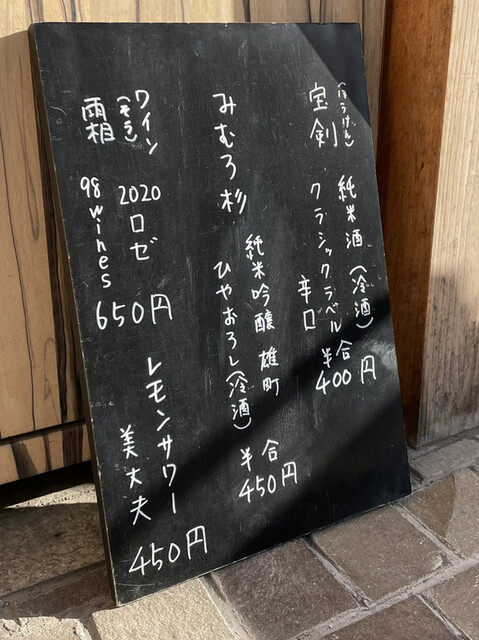 宝剣
(ほうけん)
純米酒(冷酒)
クラシックラベル
辛口
半合
400円
みむろ杉
純米吟醸 雄町
ひやおろし(冷酒)
半合
450円
ワイン
霜
2020 ロゼ
98wines
650円
レモンサワー
美丈夫
450円